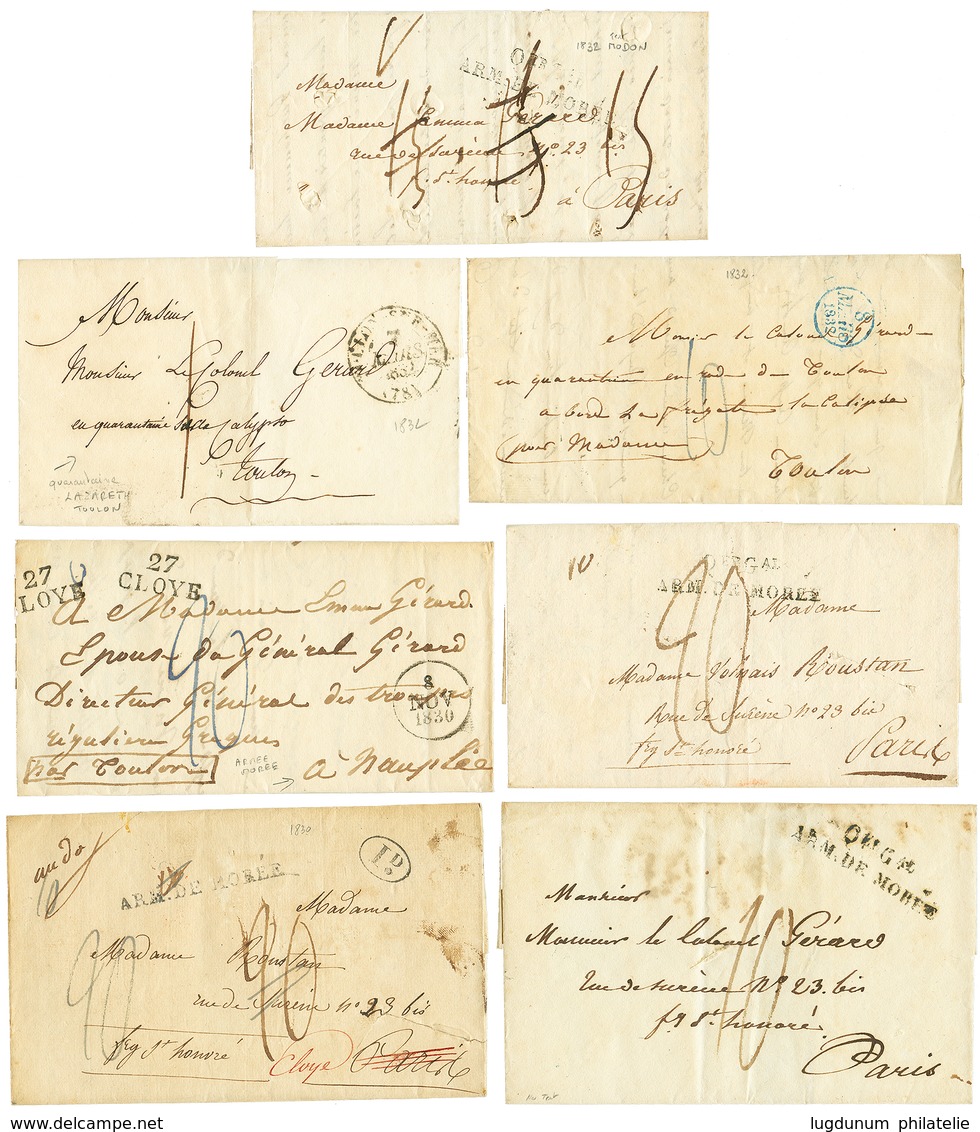 1832 MODON
ARM. DE MORÉE
Madame
Madame Emma Gérard
rue de Surène N° 23 bis
f. St honoré
à Paris
Monsieur
Monsieur Le Colonel Gérard
en quarantaine
Calypso
Toulon
TOULON-SUR-MER
(78)
1832
quarantaine
LAZARETH
TOULON
1832
8
1832
Monsieur le Colonel Gérard
en quarantaine en rade de Toulon
a bord La frégate la Calipso
pour Madame
Toulon
10
27
CLOYE
27
CLOYE
A Madame Emma Gérard
Epouse du Général Gérard
Directeur Général des troupes
régulieres Greques
par Toulon
à Nauplie
8
NOV
1830
ARMEE
MOREE
90
10
QIER GAL
ARM. DE MORÉE
90
Madame
Madame Roustan
Rue de Surène N° 23 bis
fbg St honoré
Paris
1830
au dos
ARM. DE MORÉE
1D
Madame
Madame Roustan
rue de Surène N° 23 bis
fbg St honoré
Cloye
Paris
90
90
QIER GAL
ARM. DE MORÉE
Monsieur
Monsieur le Colonel Gérard
Rue de Surène N° 23. bis
fg St honoré
Paris
10
lugdunum philatelie
www.delcampe.net